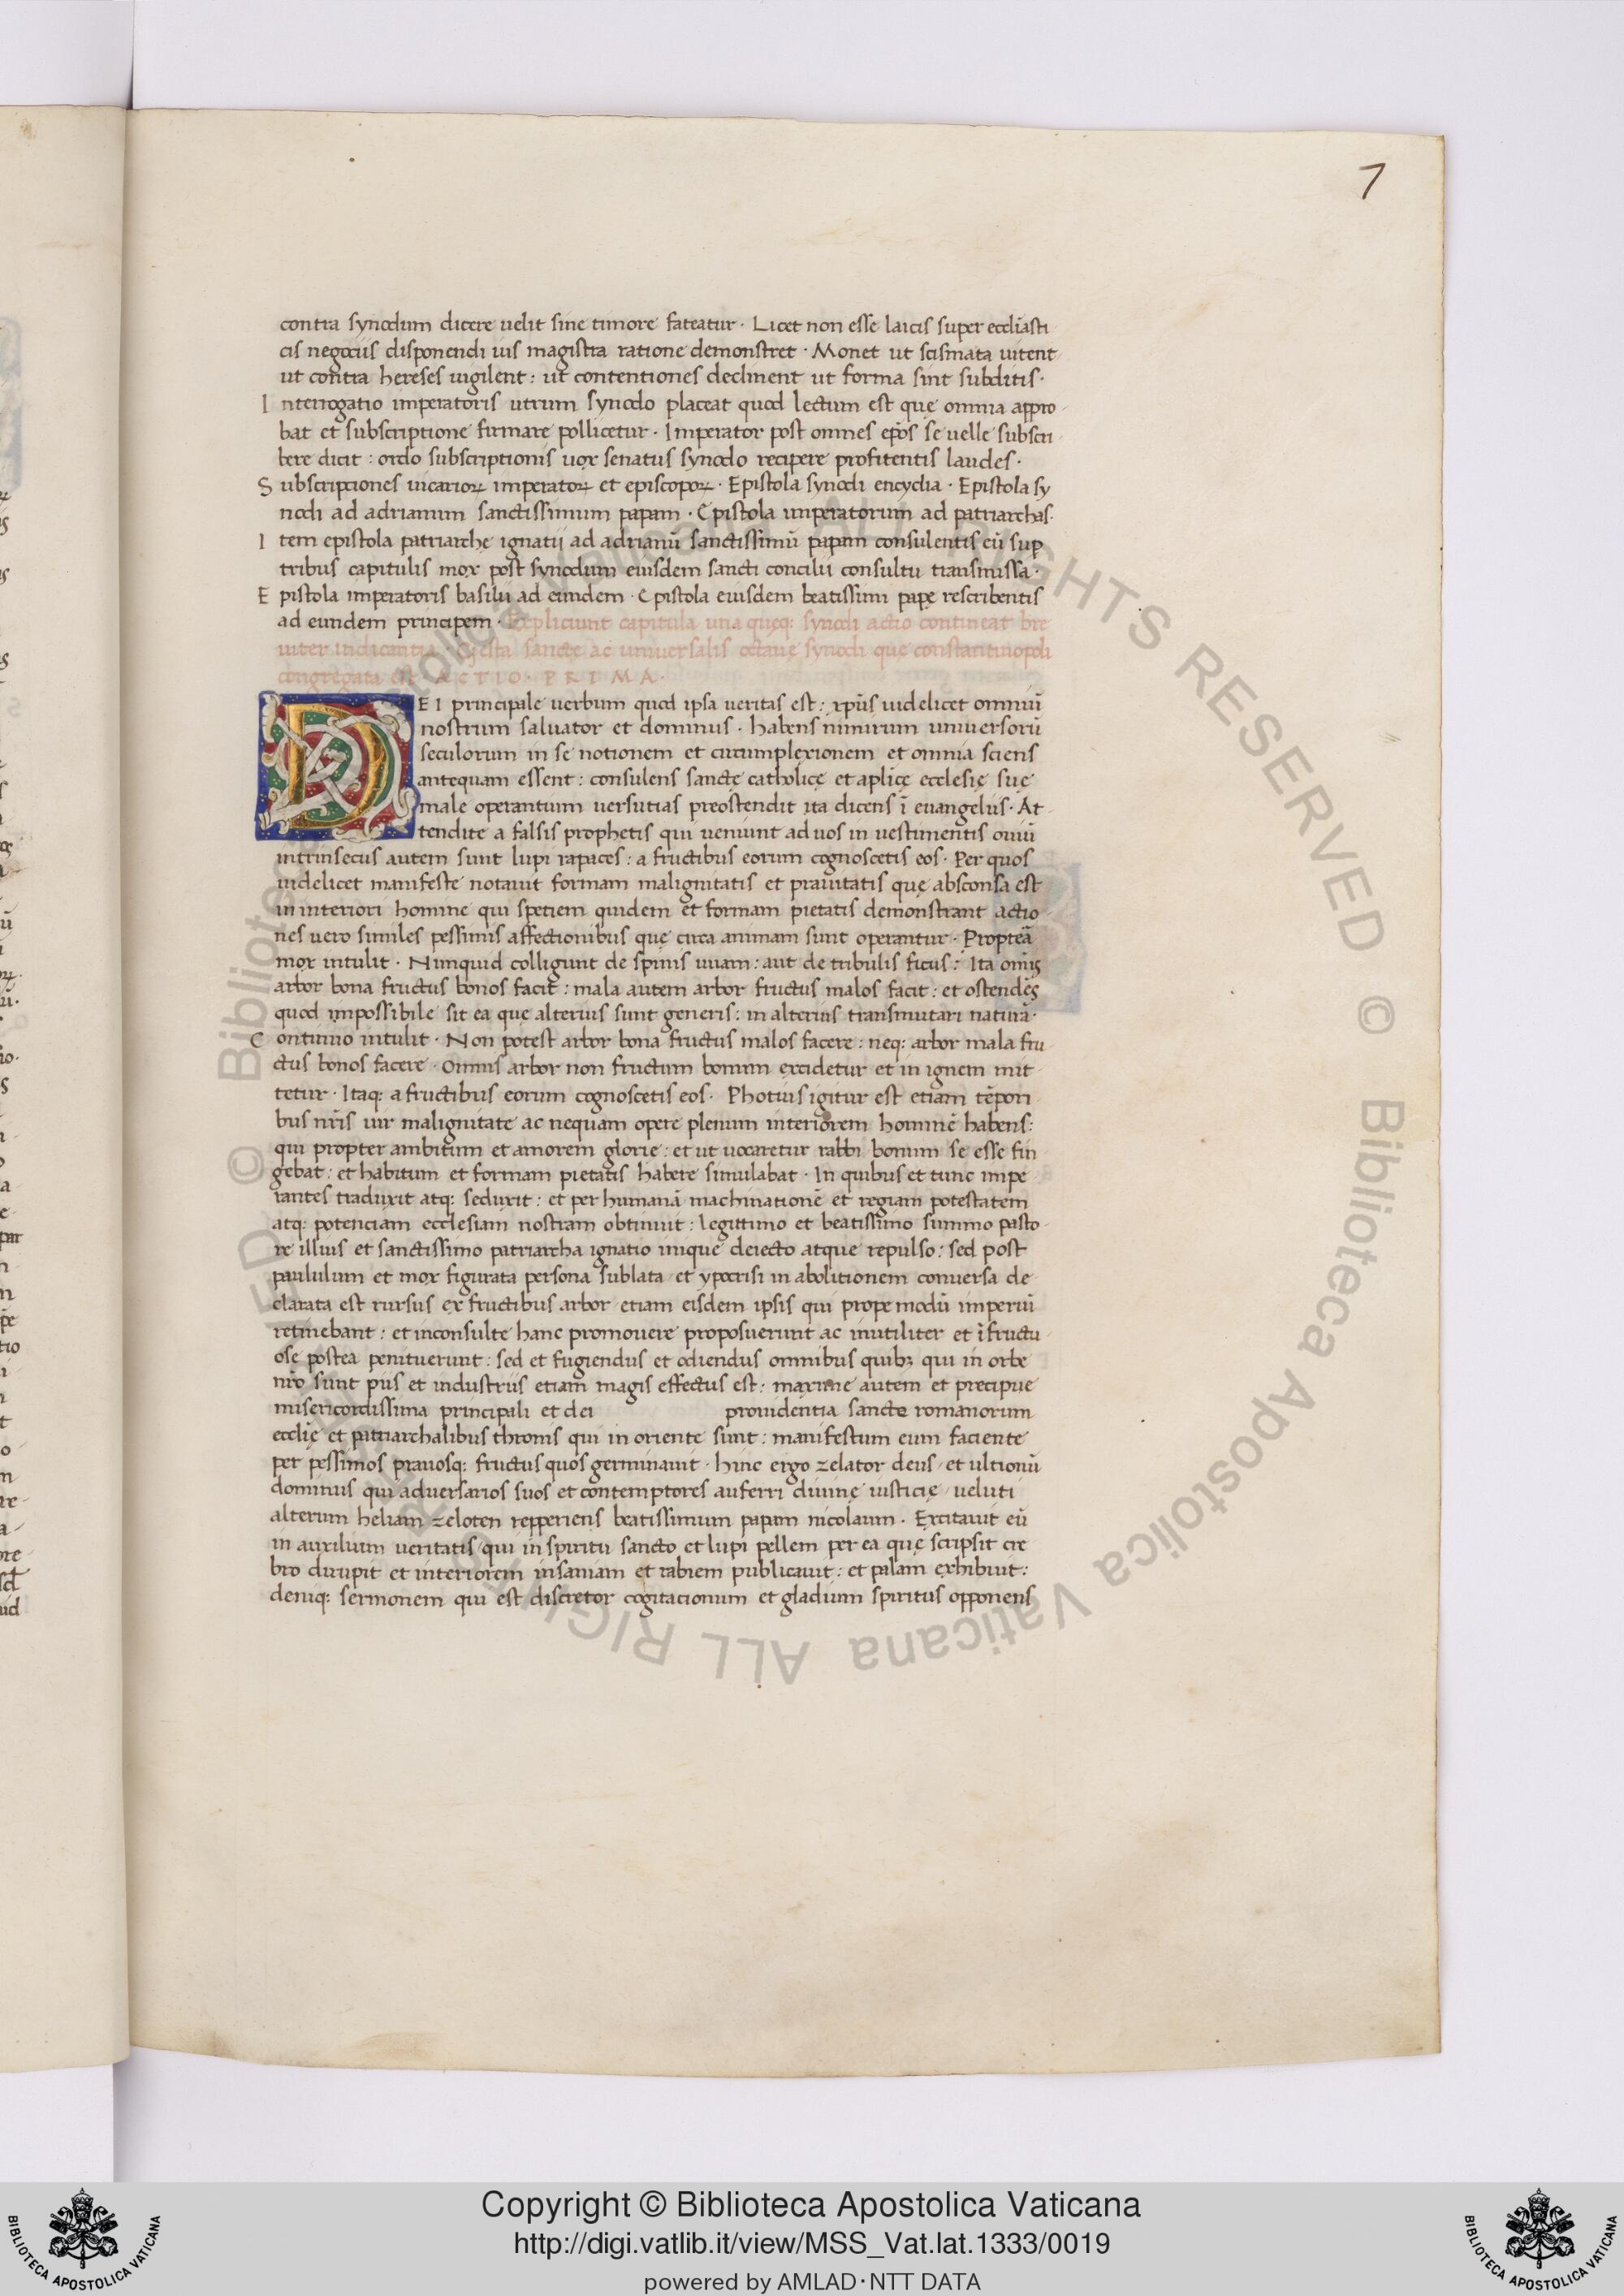 7
contra synodum dicere uelit sine timore fateatur · Licet non esse laicis super eccl̄iasti
cis negociis disponendi uis magistra ratione demonstret · Monet ut scismata uitent
ut contra hereses uigilent : ut contentiones declinent ut forma sint subditis ·
Interrogatio imperatoris utrum synodo placeat quod lectum est que omnia appro
bat et subscriptione firmare pollicetur · Imperator post omnes ep̄os se uelle subscri
bere dicit : ordo subscriptionis uox senatus synodo recipere profitentis laudes ·
Subscripciones uicarioꝝ imperatoꝝ et episcopoꝝ · Epistola synodi encyclia · Epistola sy
nodi ad adrianum sanctissimum papam · Epistola imperatorum ad patriarchas ·
Item epistola patriarche ignatii ad adrianū sanctissimū papam consulentis eū sup
tribus capitulis mox post synodum eiusdem sancti concilii consultu transmissa ·
Epistola imperatoris basilii ad eundem · Epistola eiusdem beatissimi papę rescribentis
ad eundem principem · Expliciunt capitula una queq: synodi actio contineat bre
uiter indicantia · Gesta sancte ac uniuersalis octauę synodi que constantinopoli
congregata est ACTIO · PRIMA ·
DEI principale uerbum quod ipsa ueritas est : xp̄us uidelicet omniū
nostrum saluator et dominus · habens nimirum uniuersorū
seculorum in se notionem et circumplexionem et omnia sciens
antequam essent : consulens sanctę catholicę et aplicę ecclesię suę
male operantium uersutias preostendit ita dicens ī euangelus · At
tendite a falsis prophetis qui ueniunt ad uos in uestimentis ouiū
intrinsecus autem sunt lupi rapaces : a fructibus eorum cognoscetis eos · Per quos
uidelicet manifeste notauit formam malignitatis et prauitatis quę absconsa est
in interiori homine qui spetiem quidem et formam pietatis demonstrant actio
nes uero similes pessimis affectionibus que circa animam sunt operantur · Proptea
mox intulit · Nunquid colligunt de spinis uuam : aut de tribulis ficus : Ita omīs
arbor bona fructus bonos facit : mala autem arbor fructus malos facit : et ostendēs
quod impossibile sit ea que alterius sunt generis : in alterius transmutari naturā ·
Continuo intulit · Non potest arbor bona fructus malos facere : neq: arbor mala fru
ctus bonos facere · Omnis arbor non fructum bonum excidetur et in ignem mit
tetur · Itaq: a fructibus eorum cognoscetis eos · Photius igitur est etiam tēpori
bus nr̄is uir malignitate ac nequam opere plenum interiorem hominē habens :
qui propter ambitum et amorem glorie : et ut uocaretur rabbi bonum se esse fin
gebat : et habitum et formam pietatis habere simulabat · In quibus et tunc impe
rantes traduxit atq: seduxit : et per humanā machinationē et regiam potestatem
atq: potenciam ecclesiam nostram obtinuit : legittimo et beatissimo summo pasto
re illius et sanctissimo patriarcha ignatio inique deiecto atque repulso : sed post
paululum et mox figurata persona sublata et ypocrisi in abolitionem conuersa de
clarata est rursus ex fructibus arbor etiam eisdem ipsis qui propemodū imperiū
retinebant : et inconsulte hanc promouere proposuerunt ac inutiliter et īfructu
ose postea penituerunt : sed et fugiendus et odiendus omnibus quibꝫ qui in orbe
nr̄o sunt piis et industriis etiam magis effectus est : maxime autem et precipue
misericordissima principali et dei prouidentia sancte romanorum
eccl̄ię et patriarchalibus thronis qui in oriente sunt : manifestum eum faciente
per pessimos prauosq: fructus quos germinauit · hinc ergo zelator deus et ultionū
dominus qui aduersarios suos et contemptores auferri diuinę iusticię ueluti
alterum heliam zeloten repperiens beatissimum papam nicolaum · Excitauit eū
in auxilium ueritatis qui in spiritu sancto et lupi pellem per ea quę scripsit cre
bro dirupit et interiorem insaniam et rabiem publicauit : et palam exhibuit :
deniq: sermonem qui est discretor cogitacionum et gladium spiritus opponens
© Biblioteca Apostolica Vaticana ALL RIGHTS RESERVED © Biblioteca Apostolica Vaticana ALL RIGHTS RESERVED
Copyright © Biblioteca Apostolica Vaticana
http://digi.vatlib.it/view/MSS_Vat.lat.1333/0019
powered by AMLAD·NTT DATA
BIBLIOTECA APOSTOLICA VATICANA
BIBLIOTECA APOSTOLICA VATICANA